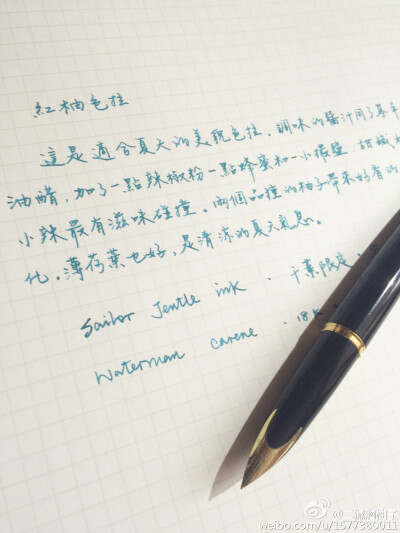 紅柚色拉
這是適合夏天的美貌色拉。調味的醬汁用了基本
油醋，加了一點辣椒粉一點蜂蜜和一小撮鹽，甜鹹
小辣最有滋味碰撞。兩個品種的柚子帶來好看的
化。薄荷葉也好，是清涼的夏天氣息。
Sailor Jentle ink . 千葉限定 .
Waterman Carene . 18K
weibo.com/u/1577380011